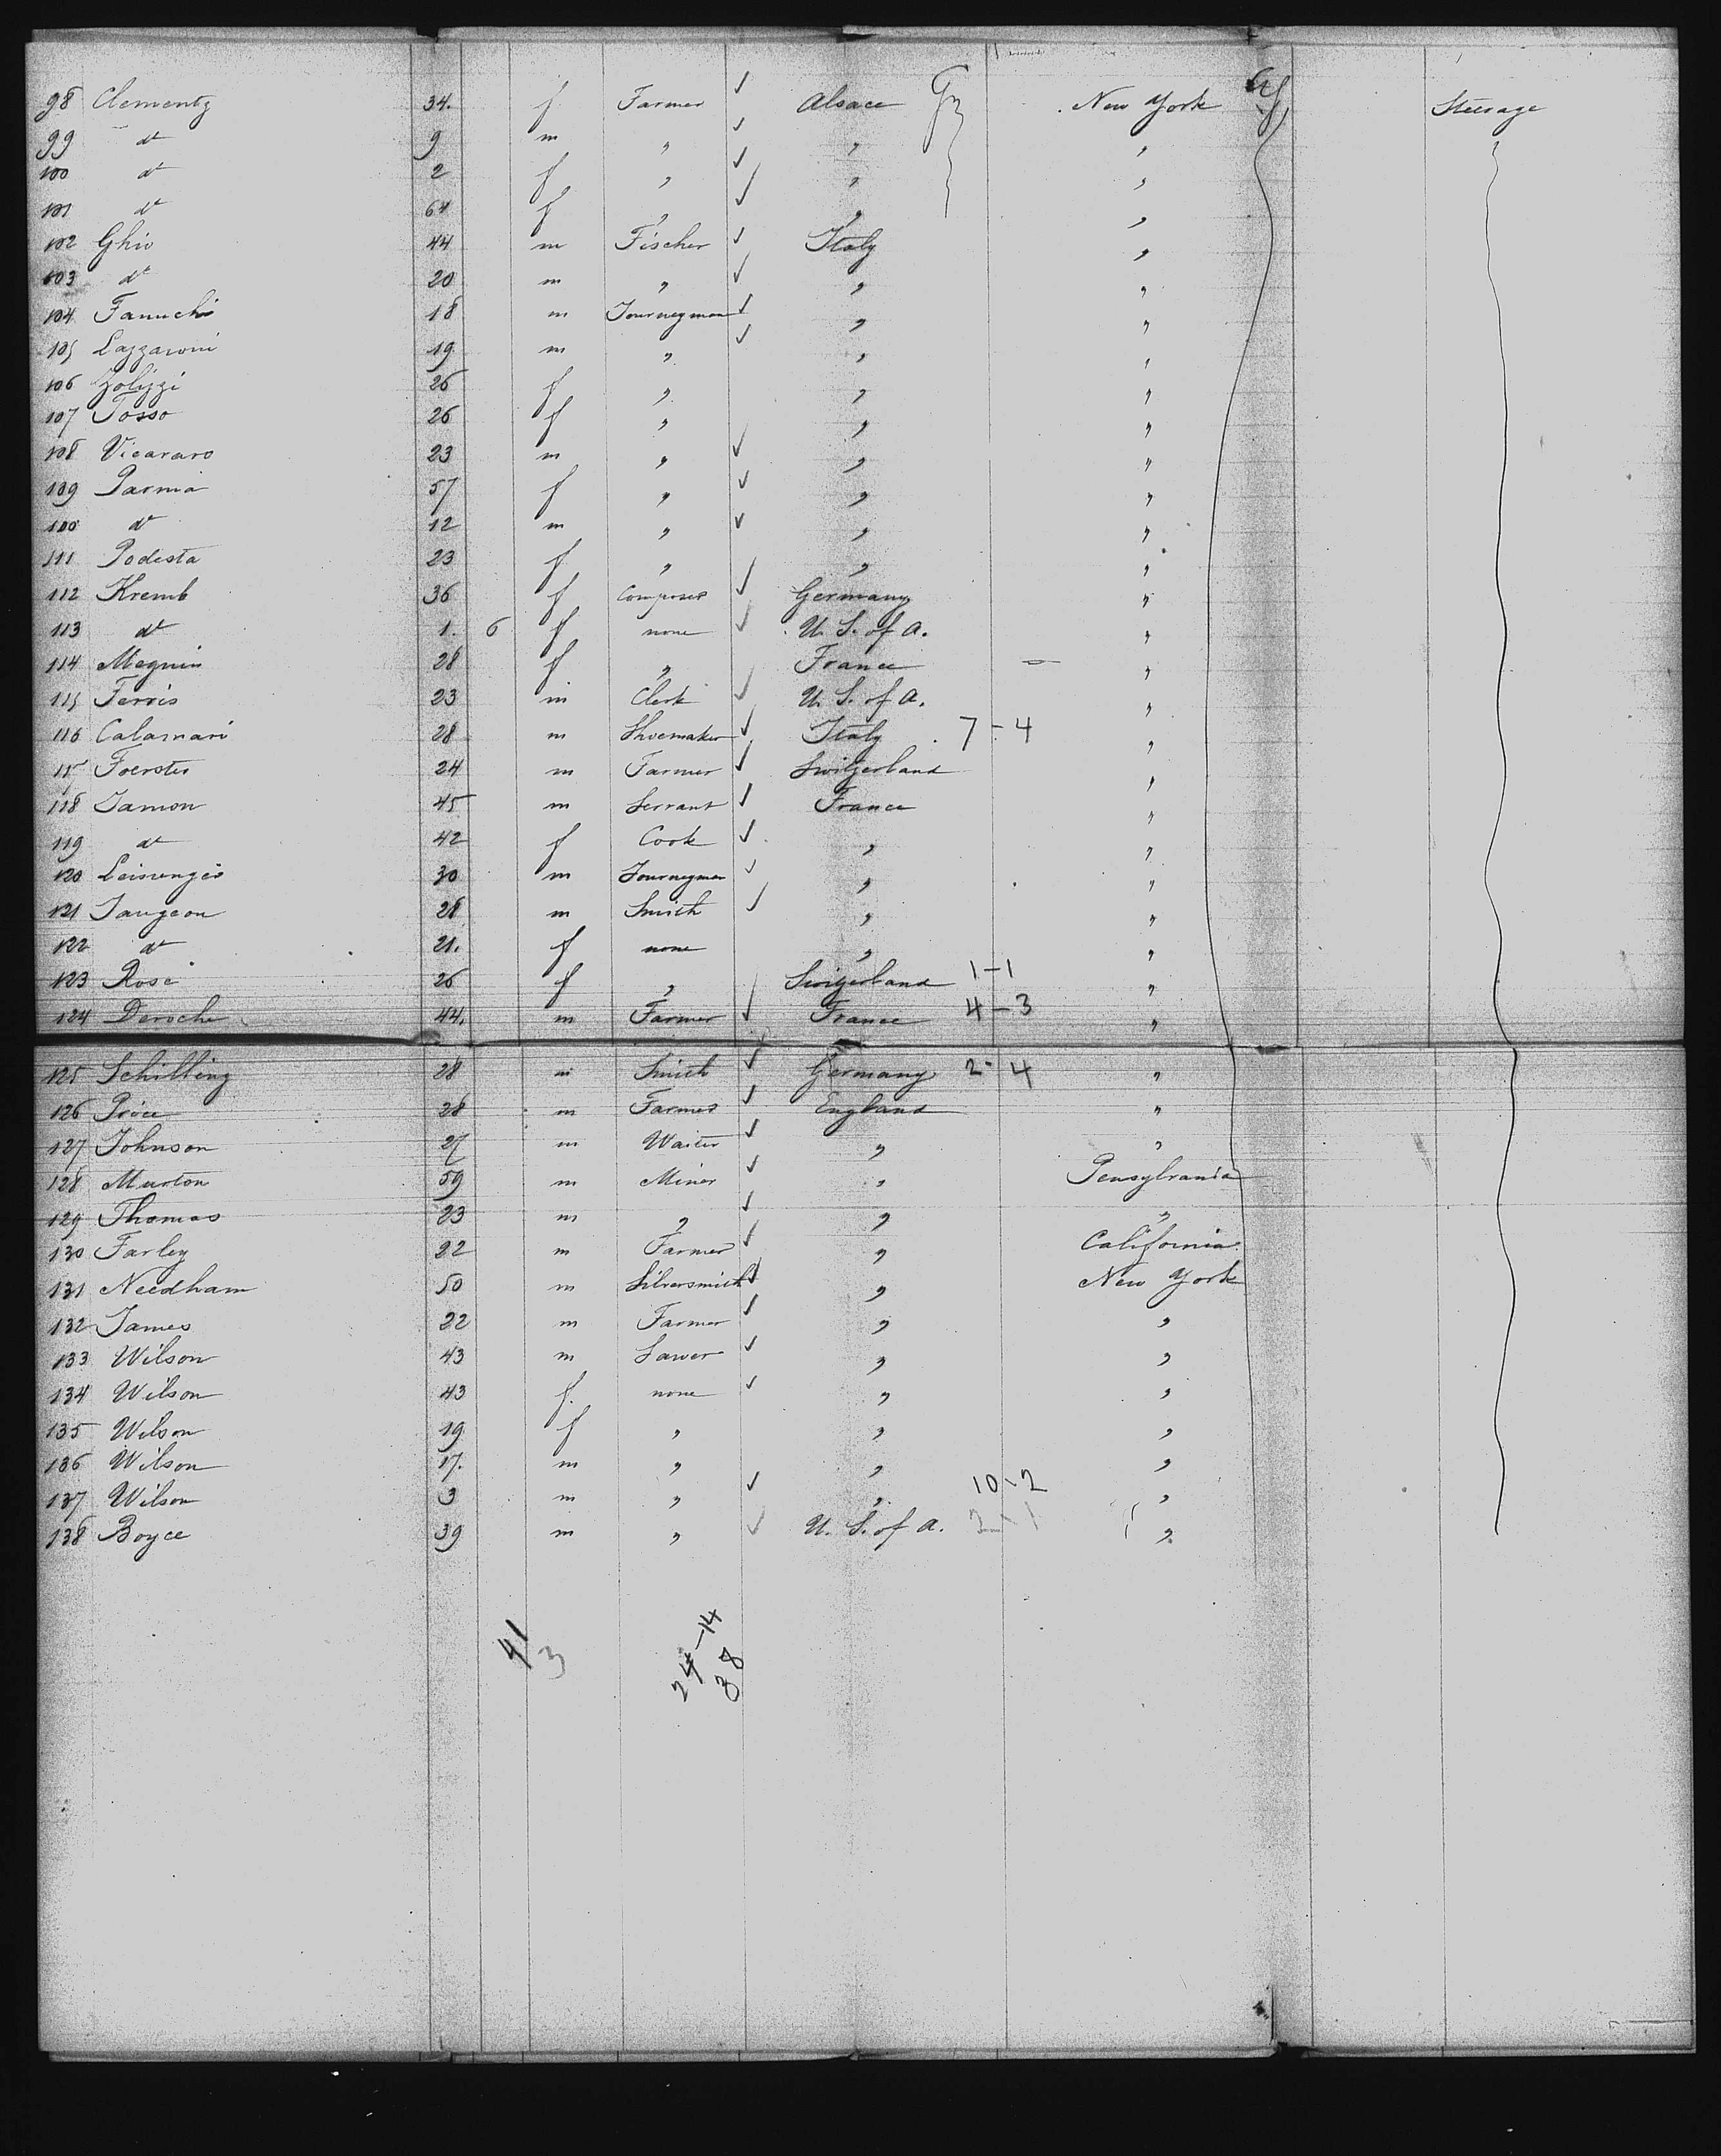 98 Clementz 34. f Farmer Alsace New York Steerage
99 do 9 m " " "
100 do 2 f " " "
101 do 64 f " " "
102 Ghio 44 m Fischer Italy "
103 do 20 m " " "
104 Fanuchi 18 m Journeyman " "
105 Lazzaroni 19 m " " "
106 Zolizzi 26 f " " "
107 Tosso 26 f " " "
108 Vicararo 23 m " " "
109 Parma 57 f " " "
110 do 12 m " " "
111 Podesta 23 f " " "
112 Kremb 36 f Composer Germany "
113 do 1. 6 f none U. S. of A. "
114 Megnin 28 f " France — "
115 Ferris 23 m Clerk U. S. of A. "
116 Calamari 28 m Shoemaker Italy 7-4 "
117 Foerster 24 m Farmer Switzerland "
118 Jamon 45 m Servant France "
119 do 42 f Cook " "
120 30 m Journeyman " "
121 Jaugeon 28 m Smith " "
122 do 21. f none " "
123 Rose 26 f " Switzerland 1-1 "
124 Deroche 44. m Farmer France 4-3 "
125 Schilling 28 m Smith Germany 2-4 "
126 Price 28 m Farmer England "
127 Johnson 27 m Waiter " "
128 Murton 59 m Miner " Pensylvania
129 Thomas 23 m " " "
130 Farley 22 m Farmer " California
131 Needham 50 m Silversmith " New York
132 James 22 m Farmer " "
133 Wilson 43 m Sawer " "
134 Wilson 43 f. none " "
135 Wilson 19 f " " "
136 Wilson 17. m " " "
137 Wilson 3 m " " 10-2 "
138 Boyce 39 m " U. S. of A. 2-1 "
41 3 24-14
38